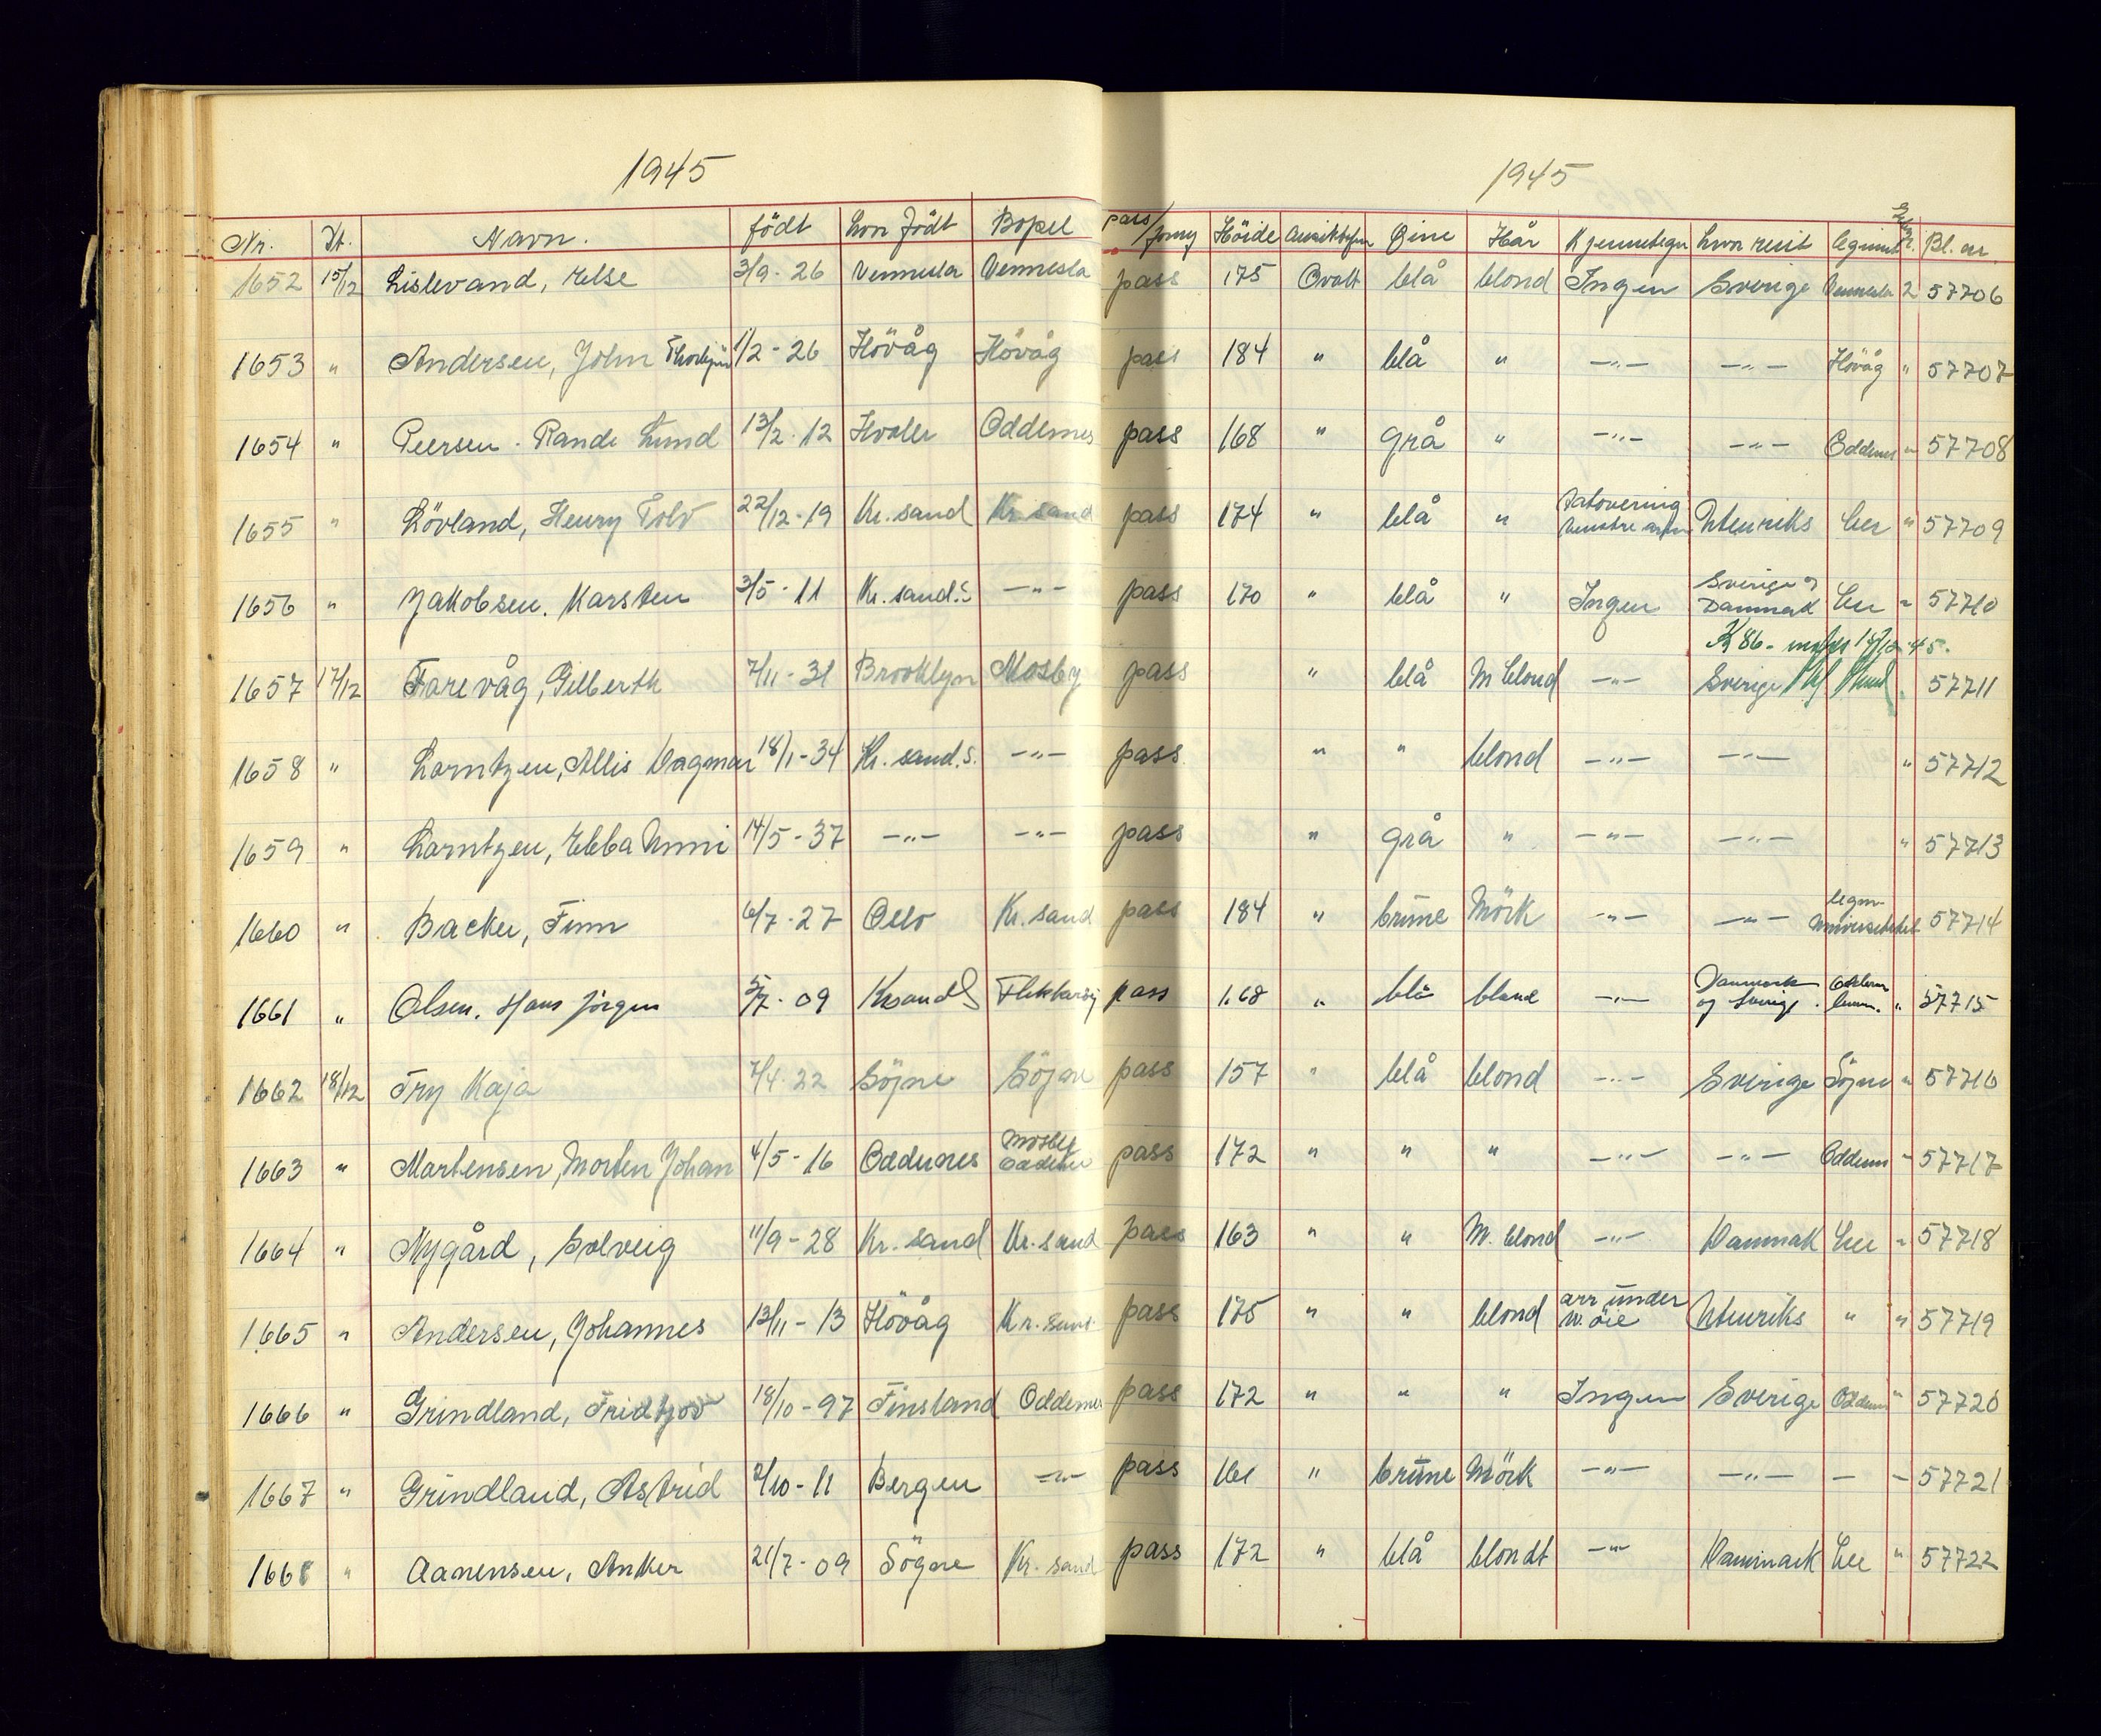 1945 1945
Nr. Dt. Navn. födt hvor födt Bopel pass/ Höide Öine Hår Kjennetegn hvor reist Bl. nr.
1652 15/12 Lislevand, Else 3/9-26 Vennesla Vennesla pass 175 Ovalt blå blond Ingen Sverige Vennesla 2 57706
1653 " Andersen, John 1/2-26 Hövåg Hövåg pass 184 " blå " -"- -"- Hövåg " 57707
1654 " Peersen. Randi Lund 13/2-12 Hvaler Oddernes pass 168 " grå " -"- -"- Oddernes " 57708
1655 " Lövland, Henry 22/12-19 Kr.sand Kr.sand pass 174 " blå " Tatovering venstre arm Utenriks her " 57709
1656 " Jakobsen. Karsten 3/5-11 Kr.sand.S -"- pass 170 " blå " Ingen Sverige og Danmark her " 57710
K 86.
1657 17/12 Farevåg, Gilberth 7/11-31 Brooklyn Mosby pass " blå M blond -"- Sverige 57711
1658 " Larntzen, Allis Dagmar 18/1-34 Kr.sand.S. -"- pass " " blond -"- -"- " 57712
1659 " Larntzen, Ebba Unni 14/5-37 -"- -"- pass " grå " -"- -"- " 57713
1660 " Backer, Finn 6/7-27 Oslo Kr.sand pass 184 " brune Mörk -"- -"- legm Universitetet 57714
1661 " Olsen. Hans Jörgen 5/7-09 Krsand S pass 1.68 " blå blond -"- Danmark og Sverige " 57715
1662 18/12 Try Kaja 7/4-22 Sögne Sögne pass 157 " blå blond -"- Sverige Sögne " 57716
1663 " Martensen, Morten Johan 4/5-16 Oddernes Mosby Oddernes pass 172 " " " -"- -"- Oddernes " 57717
1664 " Nygård, Solveig 11/9-28 Kr.sand Kr.sand pass 163 " " M. blond -"- Danmark her " 57718
1665 " Andersen, Johannes 13/11-13 Hövåg Kr.sand pass 175 " " blond arr under v. öie Utenriks " " 57719
1666 " Grindland, Fridtjov 18/10-97 Finsland Oddernes pass 172 " " " Ingen Sverige Oddernes " 57720
1667 " Grindland, Astrid 2/10-11 Bergen -"- pass 161 " brune Mörk -"- -"- - - 57721
1668 " Aanensen, Anker 21/7-09 Sögne Kr.sand pass 172 " blå blondt -"- Danmark her " 57722